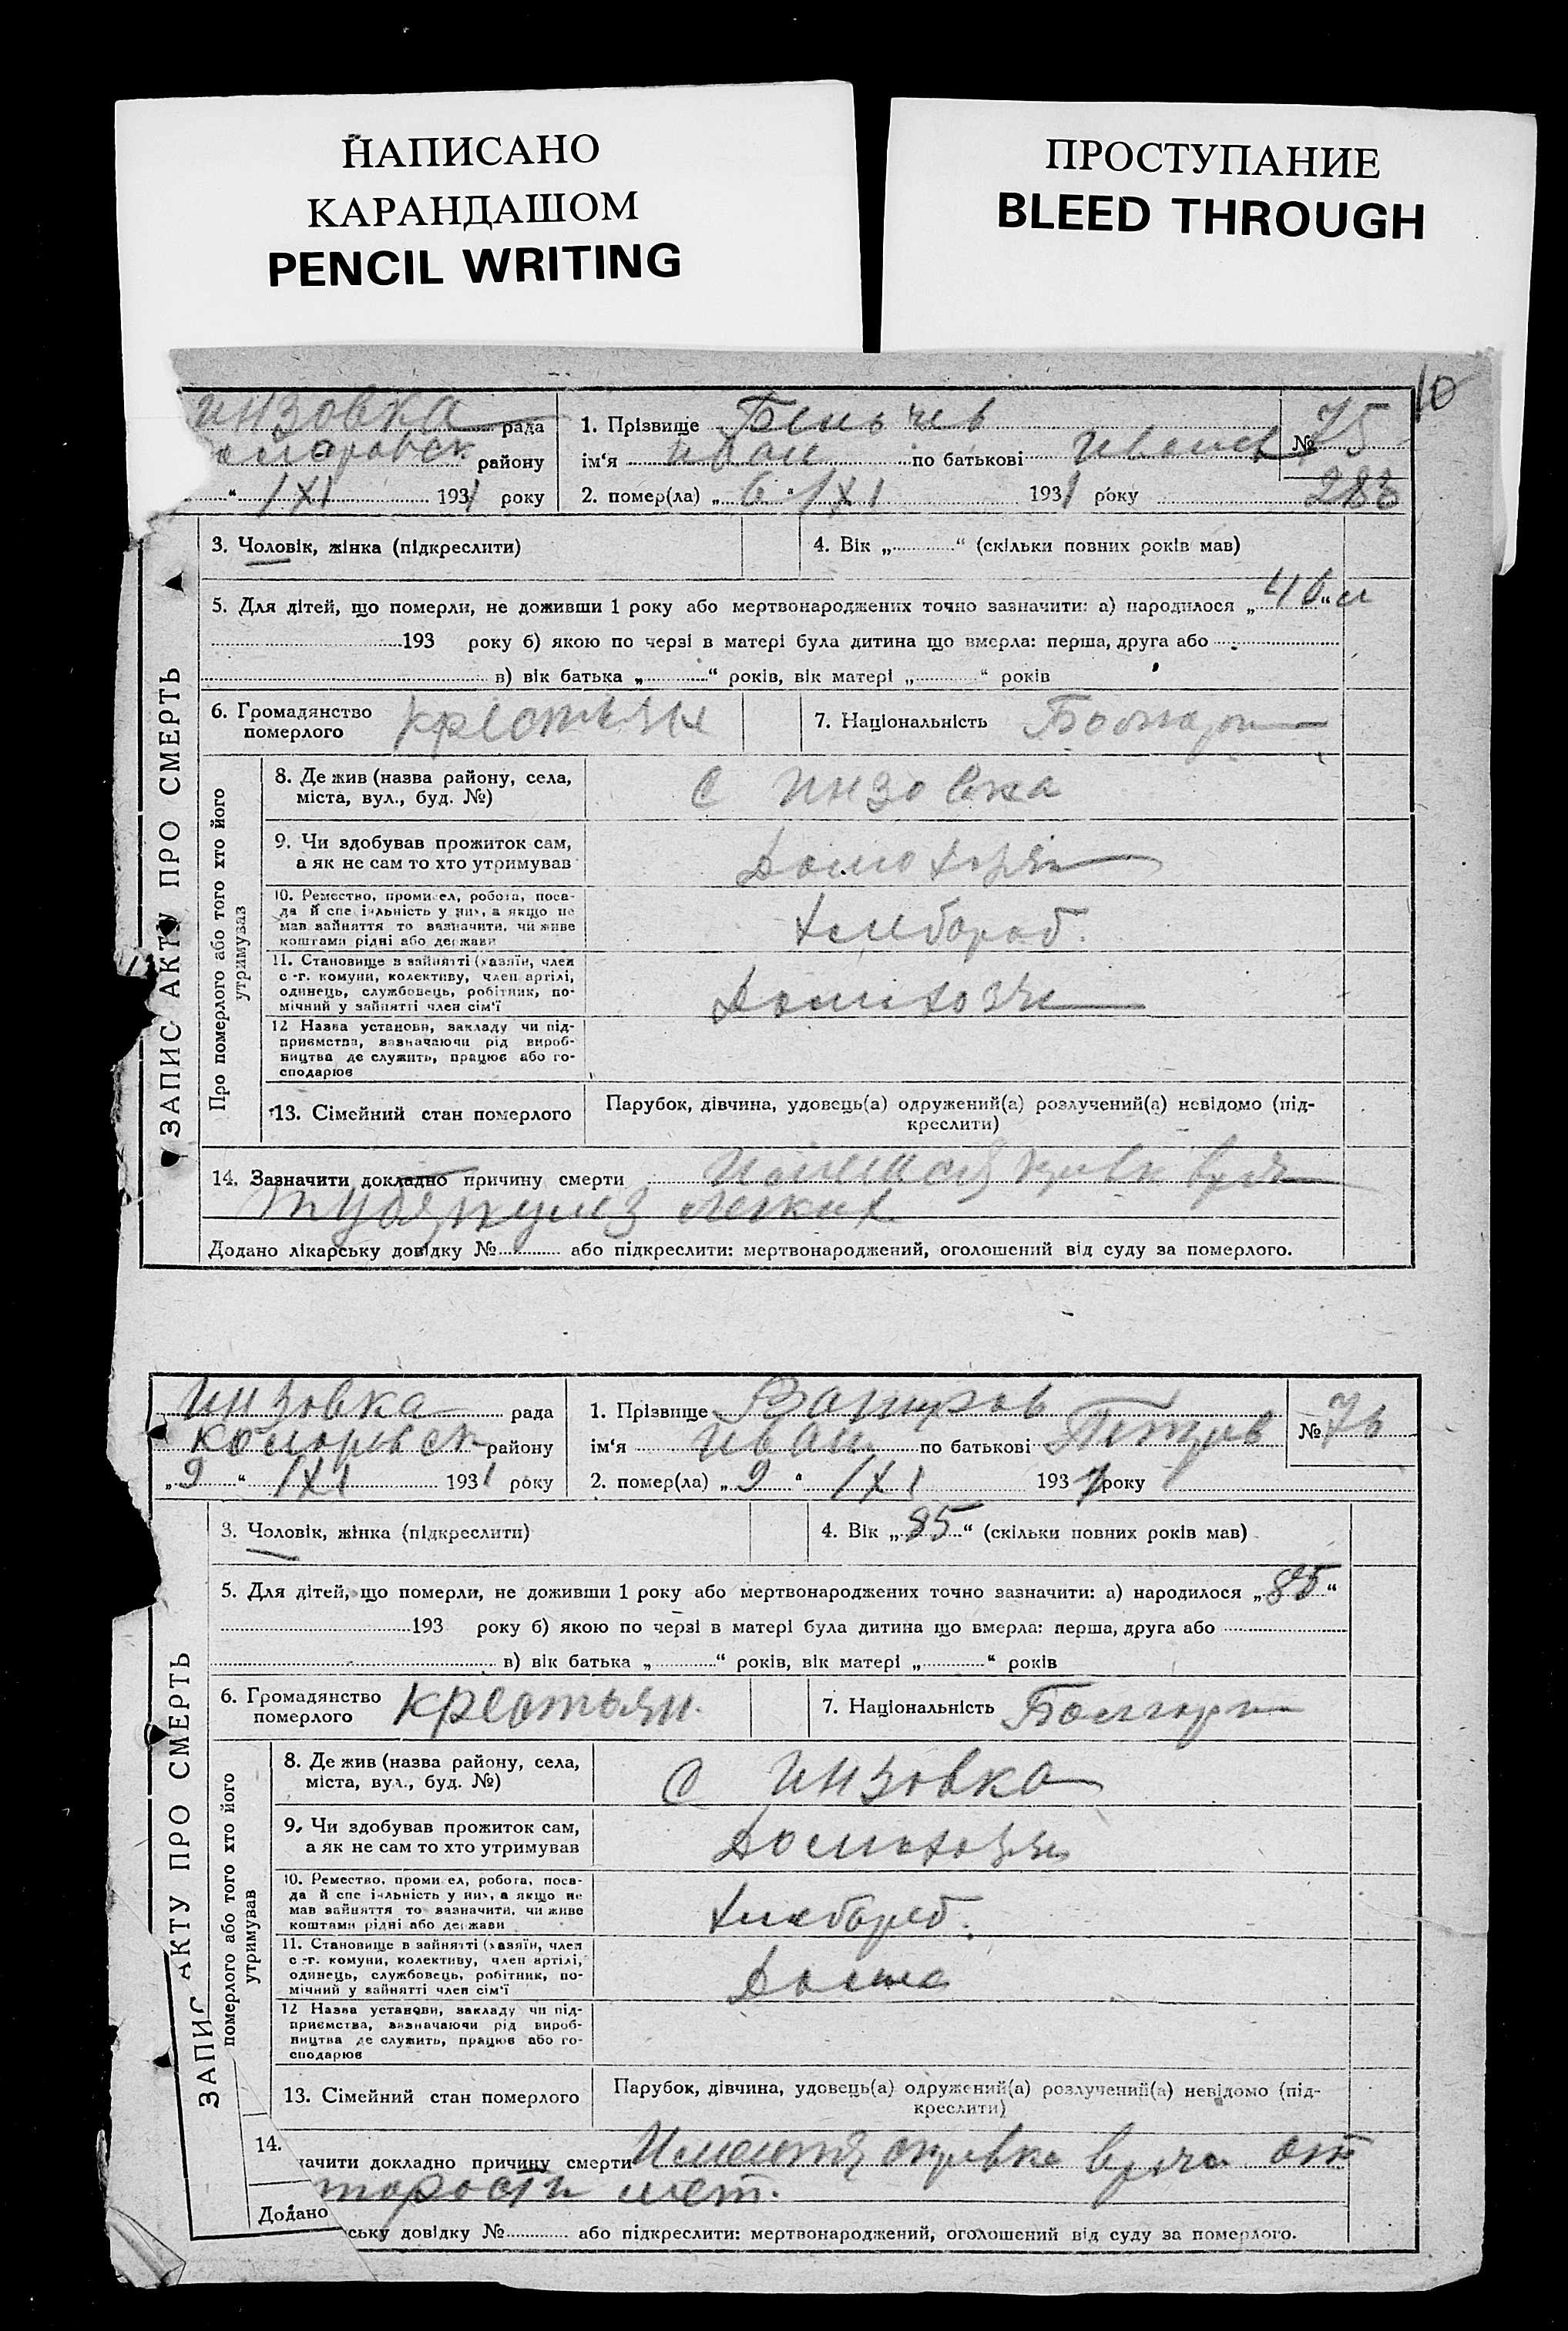 НАПИСАНО
КАРАНДАШОМ
PENCIL WRITING
ПРОСТУПАНИЕ
BLEED THROUGH
10
инзовка рада
району
“ /XI 1931 року
1. Прізвище
ім‘я Иван по батькові
2. помер(ла) „ 6 “ /XI 1931 року
№ 75
283
ЗАПИС АКТУ ПРО СМЕРТЬ
3. Чоловік, жінка (підкреслити)
4. Вік „ “ (скільки повних років мав)
5. Для дітей, що померли, не доживши 1 року або мертвонароджених точно зазначити: а) народилося „ “
193 року б) якою по черзі в матері була дитина що вмерла: перша, друга або
в) вік батька „ “ років, вік матері „ “ років
6. Громадянство
померлого крестьян
7. Національність
Про померлого або того хто його
утримував
8. Де жив (назва району, села,
міста, вул., буд. №)
с Инзовка
9. Чи здобував прожиток сам,
а як не сам то хто утримував
10. Ремество, промисел, робота, поса-
да й спеціяльність у них, а якщо не
мав зайняття то зазначити, чи живе
коштами рідні або держави
Хлебораб.
11. Становище в зайнятті (хазяїн, член
с.-г. комуни, колективу, член артілі,
одинець, службовець, робітник, по-
мічний у зайнятті член сім‘ї
12 Назва установи, закладу чи під-
приємства, зазначаючи рід вироб-
ництва де служить, працює або го-
сподарює
13. Сімейний стан померлого
Парубок, дівчина, удовець(а) одружений(а) розлучений(а) невідомо (під-
креслити)
14. Зазначити докладно причину смерти
туберкулез легких
Додано лікарську довідку № або підкреслити: мертвонароджений, оголошений від суду за померлого.
Инзовка рада
району
„ 9 “ /XI 1931 року
1. Прізвище
ім‘я Иван по батькові Петров
2. помер(ла) „ 9 “ /XI 1931 року
№ 76
ЗАПИС АКТУ ПРО СМЕРТЬ
3. Чоловік, жінка (підкреслити)
4. Вік „ 85 “ (скільки повних років мав)
5. Для дітей, що померли, не доживши 1 року або мертвонароджених точно зазначити: а) народилося „ 85 “
193 року б) якою по черзі в матері була дитина що вмерла: перша, друга або
в) вік батька „ “ років, вік матері „ “ років
6. Громадянство
померлого крестьян.
7. Національність
померлого або того хто його
утримував
8. Де жив (назва району, села,
міста, вул., буд. №)
с Инзовка
9. Чи здобував прожиток сам,
а як не сам то хто утримував
10. Ремество, проми ел, робота, поса-
да й спеціяльність у них, а якщо не
мав зайняття то зазначити, чи живе
коштами рідні або держави
11. Становище в зайнятті (хазяїн, член
с.-г. комуни, колективу, член артілі,
одинець, службовець, робітник, по-
мічний у зайнятті член сім‘ї
12 Назва установи, закладу чи під-
приємства, зазначаючи рід вироб-
ництва де служить, працює або го-
сподарює
13. Сімейний стан померлого
Парубок, дівчина, удовець(а) одружений(а) розлучений(а) невідомо (під-
креслити)
14.
начити докладно причину смерти от
тарости лет.
Додано
ську довідку № або підкреслити: мертвонароджений, оголошений від суду за померлого.